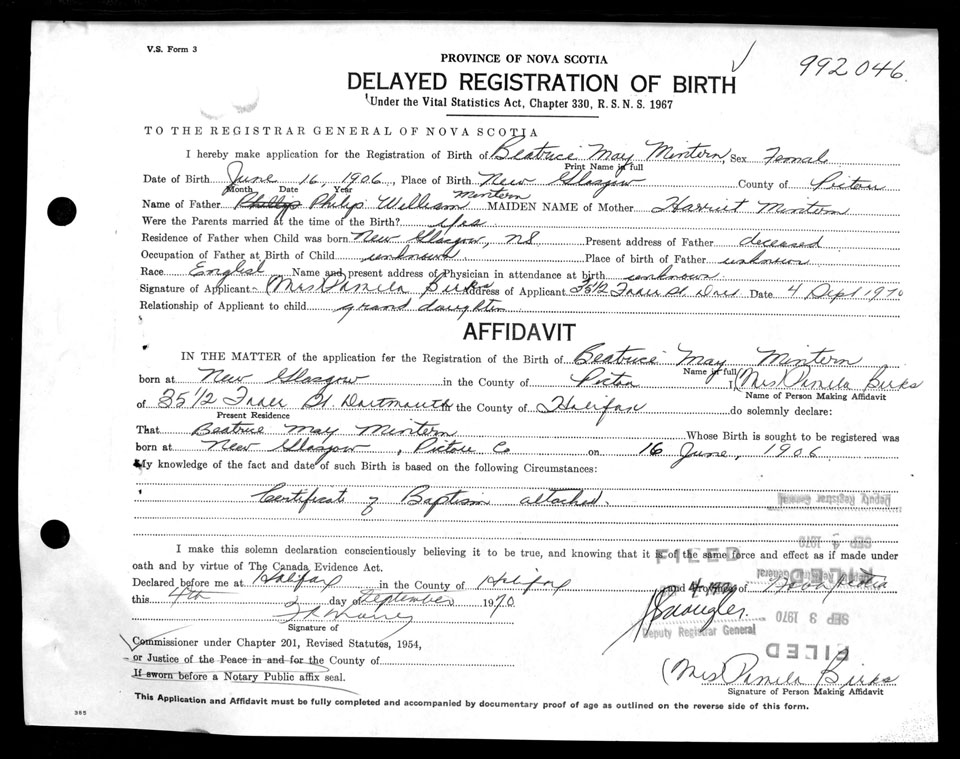 V.S. Form 3
992046.
PROVINCE OF NOVA SCOTIA
DELAYED REGISTRATION OF BIRTH
Under the Vital Statistics Act, Chapter 330, R.S.N.S. 1967
TO THE REGISTRAR GENERAL OF NOVA SCOTIA
I hereby make application for the Registration of Birth of Beatrice May Mintern, Sex Femal
Print Name in full
Date of Birth June 16, 1906, Place of Birth New Glasgow County of Pictou
Month Date Year
Name of Father Philip William Mintern MAIDEN NAME of Mother Harriet Mintern
Were the Parents married at the time of the Birth? yes
Residence of Father when Child was born New Glasgow, NS Present address of Father deceased
Occupation of Father at Birth of Child unknown Place of birth of Father unknown
Race English Name and present address of Physician in attendance at birth unknown
Signature of Applicant (Mrs Pamela Birks Address of Applicant 35 1/2 Date 4 Sept 1970
Relationship of Applicant to child grand daughter
AFFIDAVIT
IN THE MATTER of the application for the Registration of the Birth of Beatrice May Mintern
Name in full
born at New Glasgow in the County of Pictou I (Mrs Pamela Birks
Name of Person Making Affidavit
of 35 1/2 Dartmouth in the County of Halifax do solemnly declare:
Present Residence
That Beatrice May Mintern Whose Birth is sought to be registered was
born at New Glasgow, Pictou C on 16 June, 1906
My knowledge of the fact and date of such Birth is based on the following Circumstances:
Certificat of Baptism attached.
Deputy Registrar General
I make this solemn declaration conscientiously believing it to be true, and knowing that it is of the same force and effect as if made under
oath and by virtue of The Canada Evidence Act.
FILED
Declared before me at Halifax in the County of Halifax and Province of Nova Scotia
this 4th day of September 1970
SEP 3 1970
Signature of
Deputy Registrar General
FILED
Commissioner under Chapter 201, Revised Statutes, 1954,
or Justice of the Peace in and for the County of
(Mrs Pamela Birks
If sworn before a Notary Public affix seal.
Signature of Person Making Affidavit
This Application and Affidavit must be fully completed and accompanied by documentary proof of age as outlined on the reverse side of this form.
385